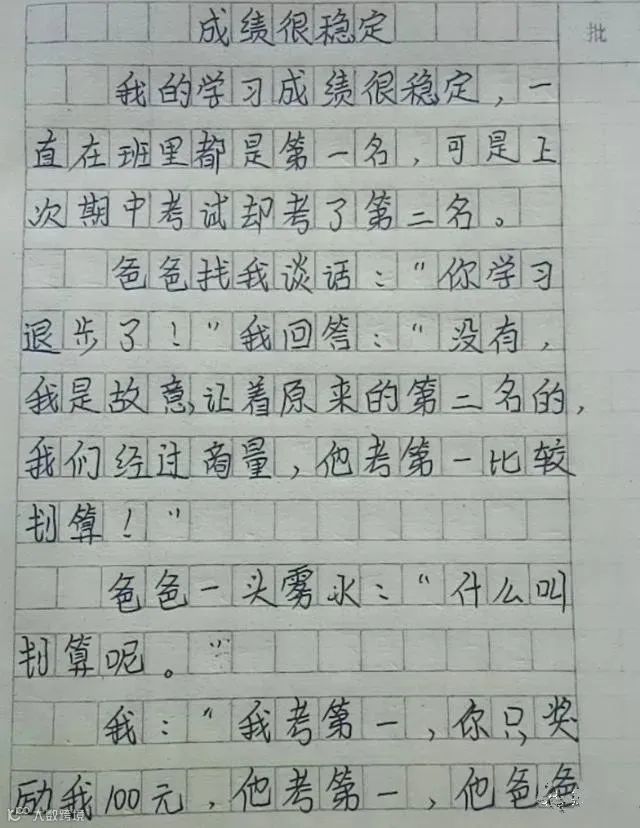 成绩很稳定
批
我的学习成绩很稳定，一
直在班里都是第一名，可是上
次期中考试却考了第二名。
爸爸找我谈话：“你学习
退步了！”我回答：“没有，
我是故意让着原来的第二名的，
我们经过商量，他考第一比较
划算！”
爸爸一头雾水：“什么叫
划算呢。”
我：“我考第一，你只奖
励我100元，他考第一，他爸爸
大数跨境